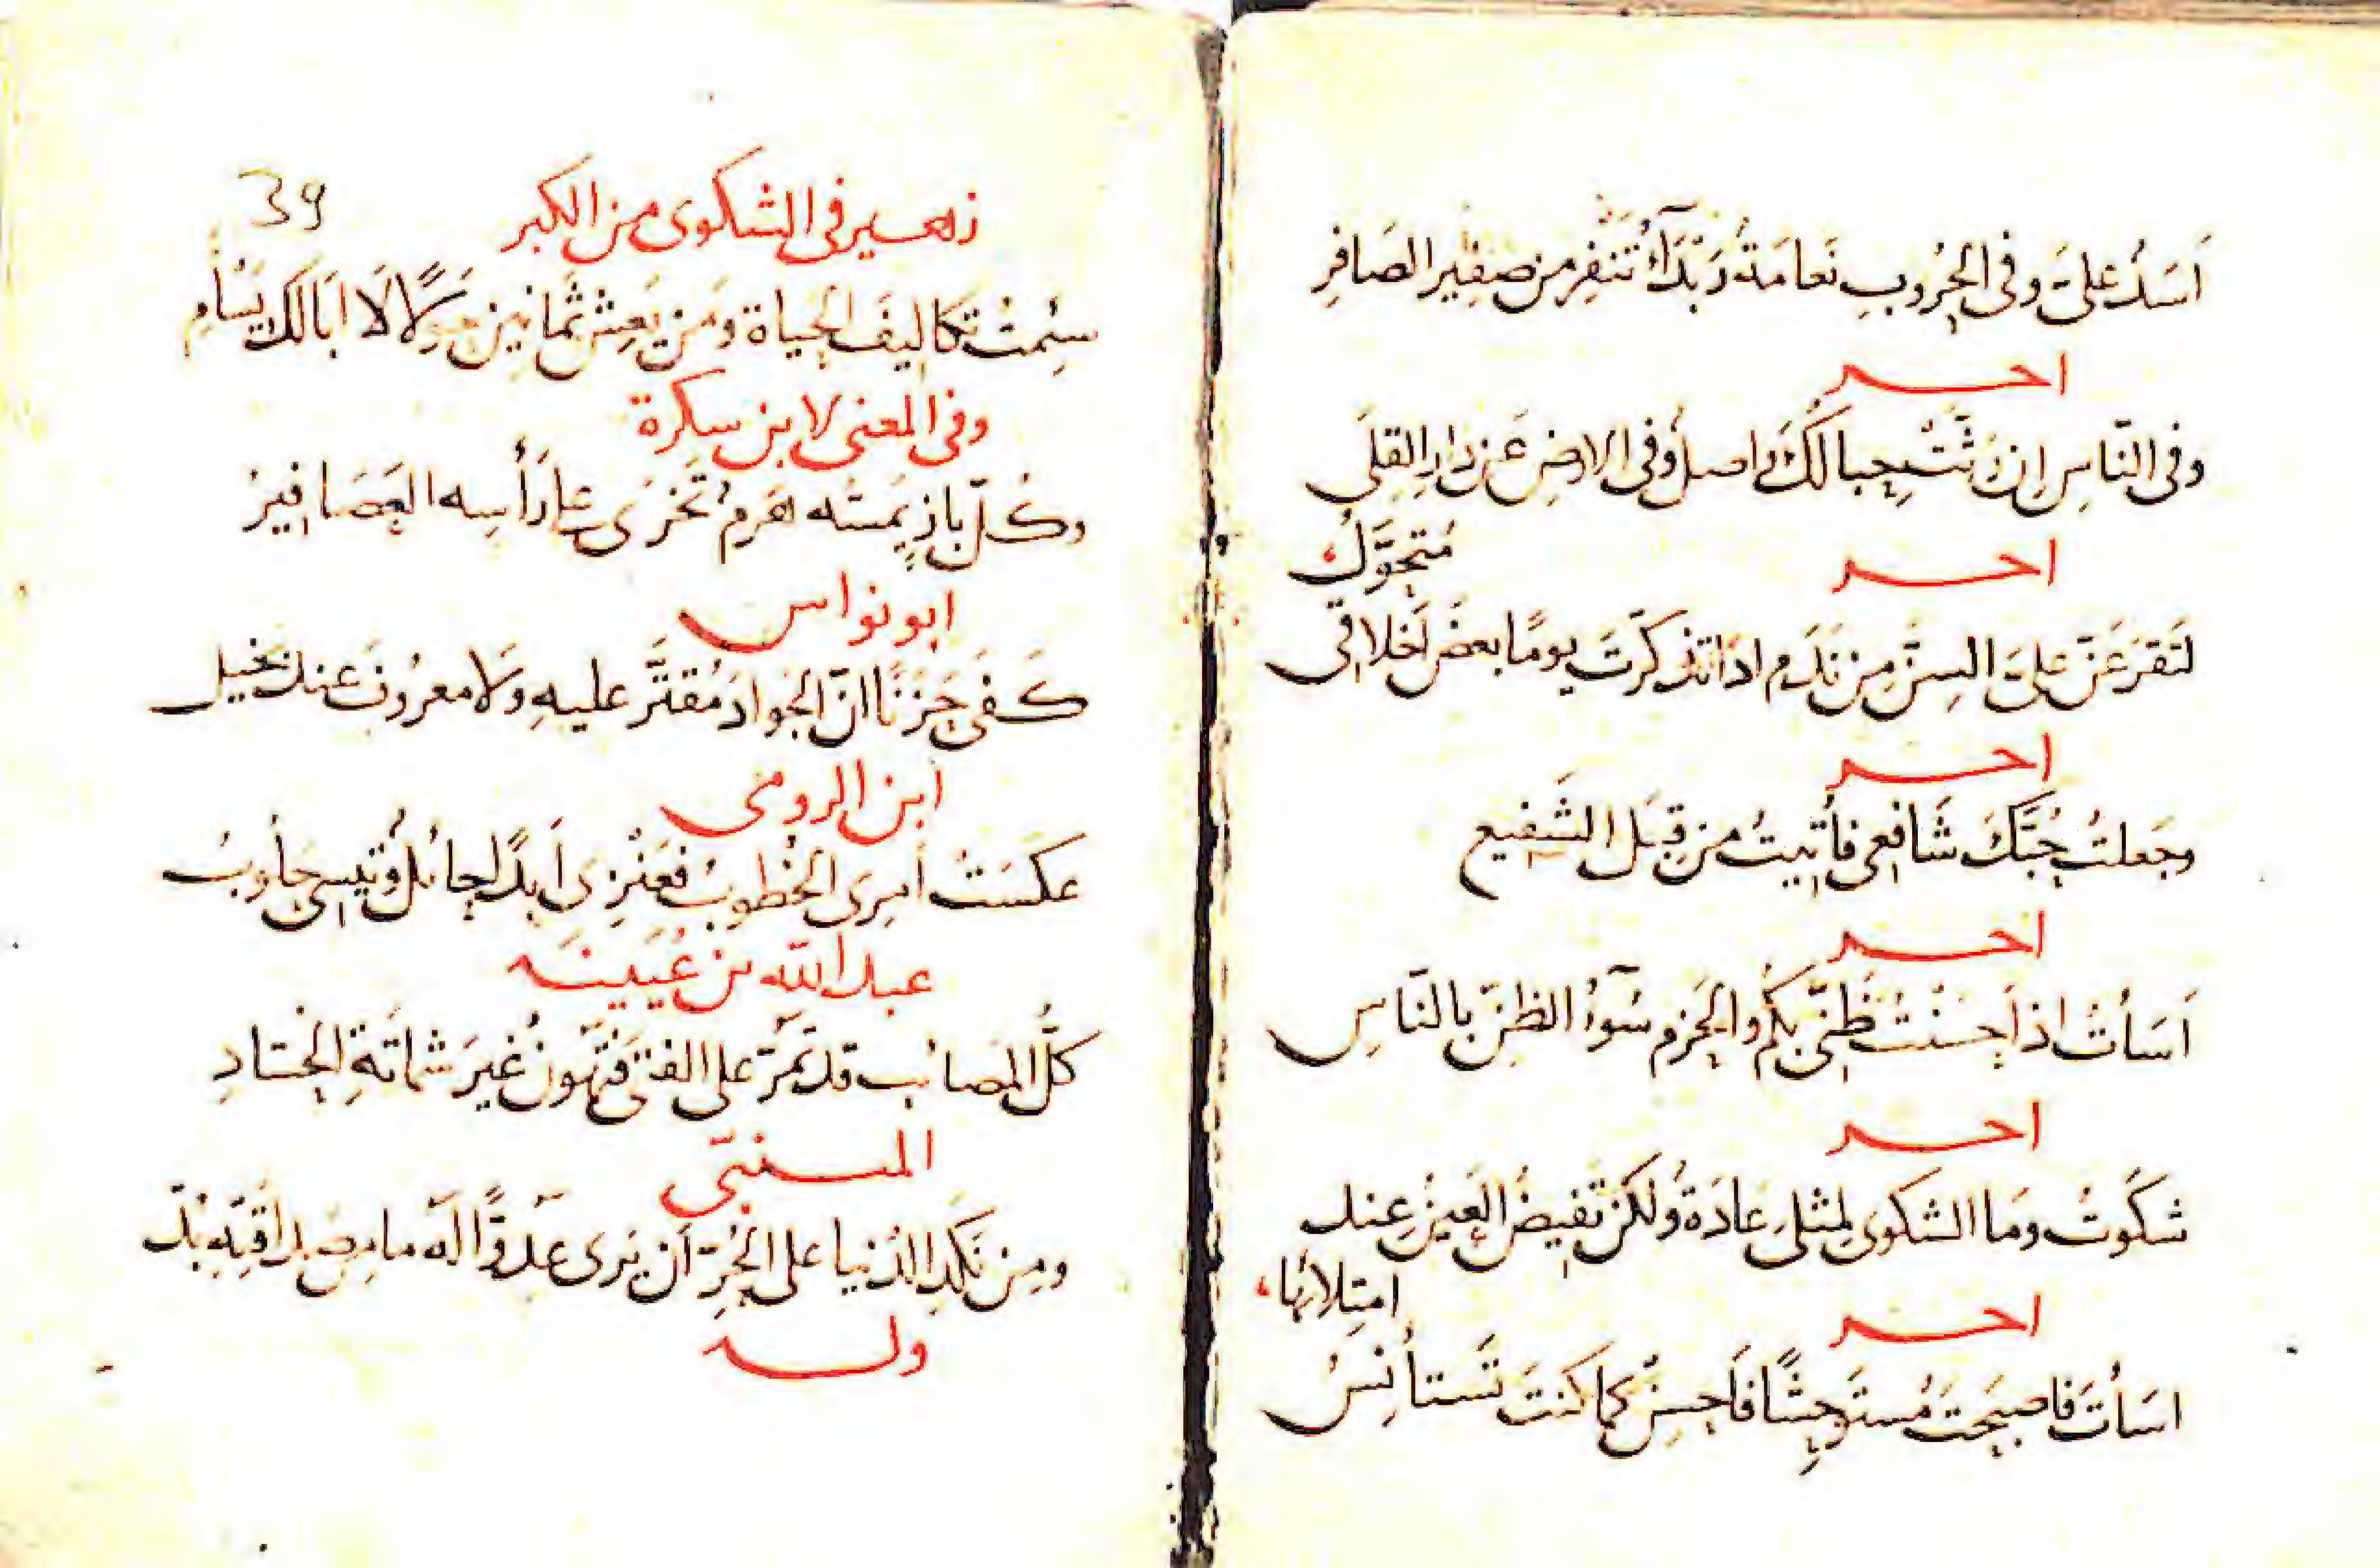 اَسَدٌ عَلَىَّ وفى الحرُوبِ نَعامَةٌ رَبْدَآءُ تَنفِر من صفِير الصَافِرِ
اخر
وفى النّاسِ اِن رَثَّتْ حِبالُكَ واصلٌ وفى الارضِ عن دارِ القِلَى
مُتحَوَّلُ
اخر
لَتَقرَعَنّ عَلىَّ السِنَّ مِن نَدَمٍ اذا تذكرّتَ يومًا بعضَ اَخلاقِى
اخر
وجَعلتُ حُبَّكَ شَافِعى فأُتيتُ من قِبَل الشَفيع
اخر
اَسَأتُ اذ اَحسَنْتُ ظَنّى بكمُ والحَزم سُوٓءُ الظنّ بالنّاسِ
اخر
شكَوتُ ومَا الشكوى لمثلىَ عَادَةٌ ولكن تَفيضُ العَينُ عند
امتِلائها
اخر
اسَأتَ فاصبَحتَ مُستَوحِشًا فَاَحسِنْ كما كنتَ تَستأنِسُ
39
زهير فى الشكوى من الكبر
سئِمتُ تكاليفَ الحَياة ومَن يَعِش ثَمانينَ حَولًا لَا اَبا لَكَ يَسْأَمِ
وفى المعنى لابن سكرة
وكُلّ بازٍ يَمسّه هَرمٌ تَخرَى على رَأسِه العَصَافِيرُ
ابو نواس
كفَى حَزَنًا انّ الجَوادَ مُقتَّر عليهِ وَلا معرُوفَ عند بخيل
ابن الرومى
عكسَتْ اَمرِىَ الخُطوبُ فعَنْزِىَ اَبدًا حائلٌ وتيسى حَلُوبُ
عبد الله بن عُيَينَه
كلُّ المصائب قد تمرّ على الفتى فتَهُونُ غيرَ شماتَةِ الحُسّادِ
المتنبّى
ومِن نَكَدِ الدُنيا على الحُرّ اَن يَرى عَدوًّا لَه ما مِن صَداقَتِه بُدّ
وله